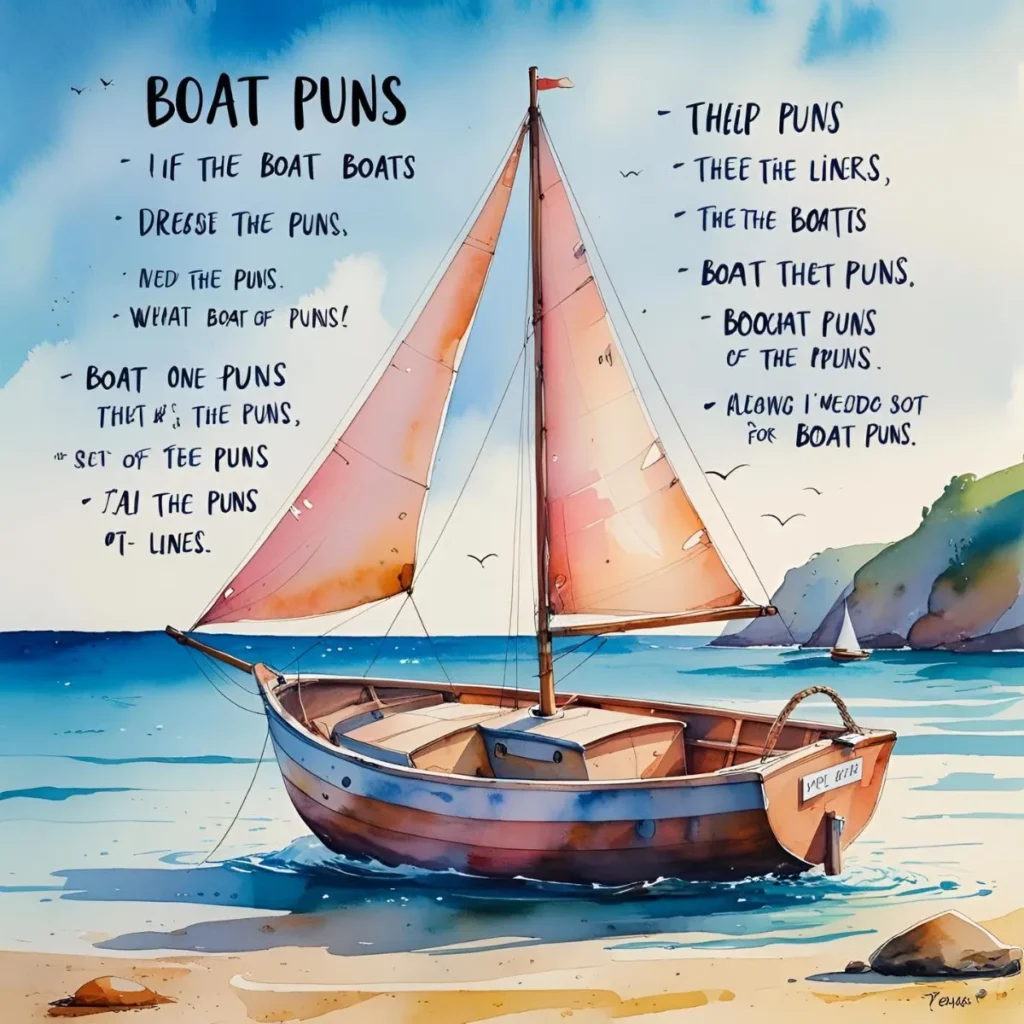 BOAT PUNS
- IIF THE BOAT BOATS
- DREGSE THE PUNS.
- NED THE PUNS.
- WHIAT BOAT OF PUNS!
- BOAT ONE PUNS
THET THE PUNS,
SET OF TEE PUNS
- JAI THE PUNS
OT- LINES.
- THEIP PUNS
- THEE THE LINERS,
- THE THE BOATTS
- BOAT THET PUNS.
- BOOCHAT PUNS
CF THE PPUNS.
- I'NEODO SOT
FOR BOAT PUNS.